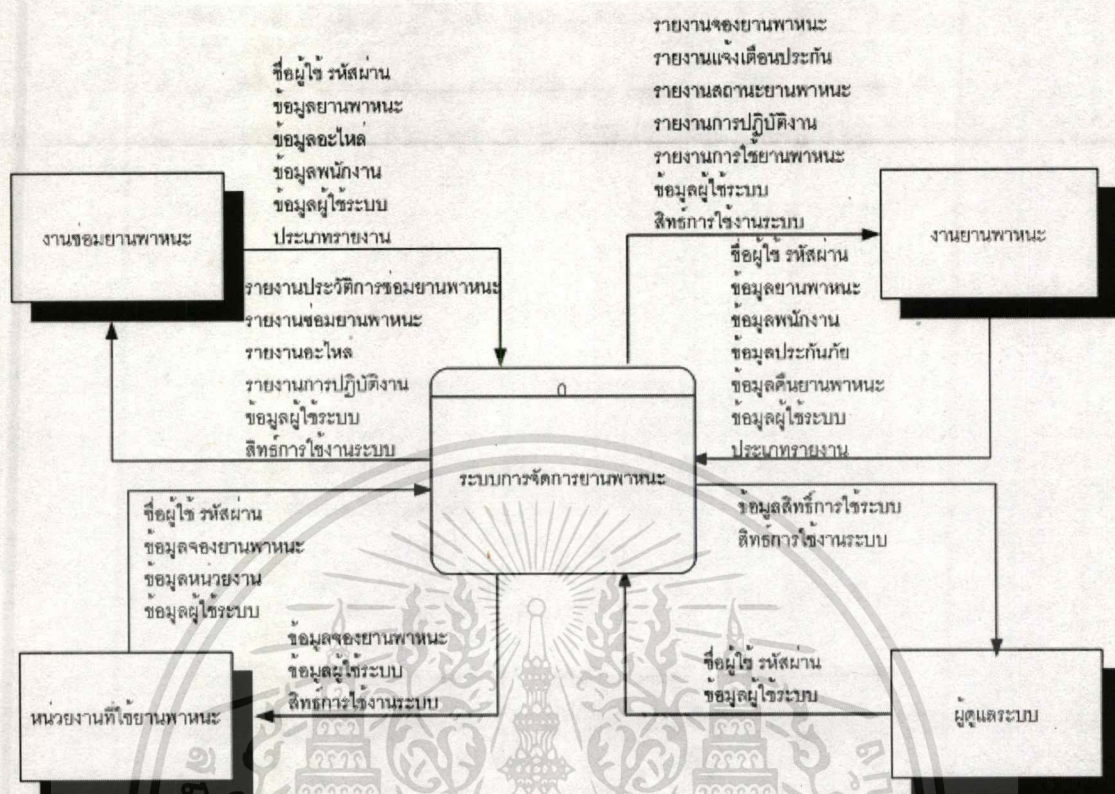 ชื่อผู้ใช้ รหัสผ่าน
ข้อมูลยานพาหนะ
ข้อมูลอะไหล่
ข้อมูลพนักงาน
ข้อมูลผู้ใช้ระบบ
ประเภทรายงาน
รายงานจองยานพาหนะ
รายงานแจ้งเตือนประกัน
รายงานสถานะยานพาหนะ
รายงานการปฏิบัติงาน
รายงานการใช้ยานพาหนะ
ข้อมูลผู้ใช้ระบบ
สิทธ์การใช้งานระบบ
งานซ่อมยานพาหนะ
งานยานพาหนะ
รายงานประวัติการซ่อมยานพาหนะ
รายงานซ่อมยานพาหนะ
รายงานอะไหล่
รายงานการปฏิบัติงาน
ข้อมูลผู้ใช้ระบบ
สิทธ์การใช้งานระบบ
ชื่อผู้ใช้ รหัสผ่าน
ข้อมูลยานพาหนะ
ข้อมูลพนักงาน
ข้อมูลประกันภัย
ข้อมูลคืนยานพาหนะ
ข้อมูลผู้ใช้ระบบ
ประเภทรายงาน
0
ระบบการจัดการยานพาหนะ
ชื่อผู้ใช้ รหัสผ่าน
ข้อมูลจองยานพาหนะ
ข้อมูลหน่วยงาน
ข้อมูลผู้ใช้ระบบ
ข้อมูลสิทธิ์การใช้ระบบ
สิทธ์การใช้งานระบบ
ข้อมูลจองยานพาหนะ
ข้อมูลผู้ใช้ระบบ
สิทธ์การใช้งานระบบ
ชื่อผู้ใช้ รหัสผ่าน
ข้อมูลผู้ใช้ระบบ
หน่วยงานที่ใช้ยานพาหนะ
ผู้ดูแลระบบ